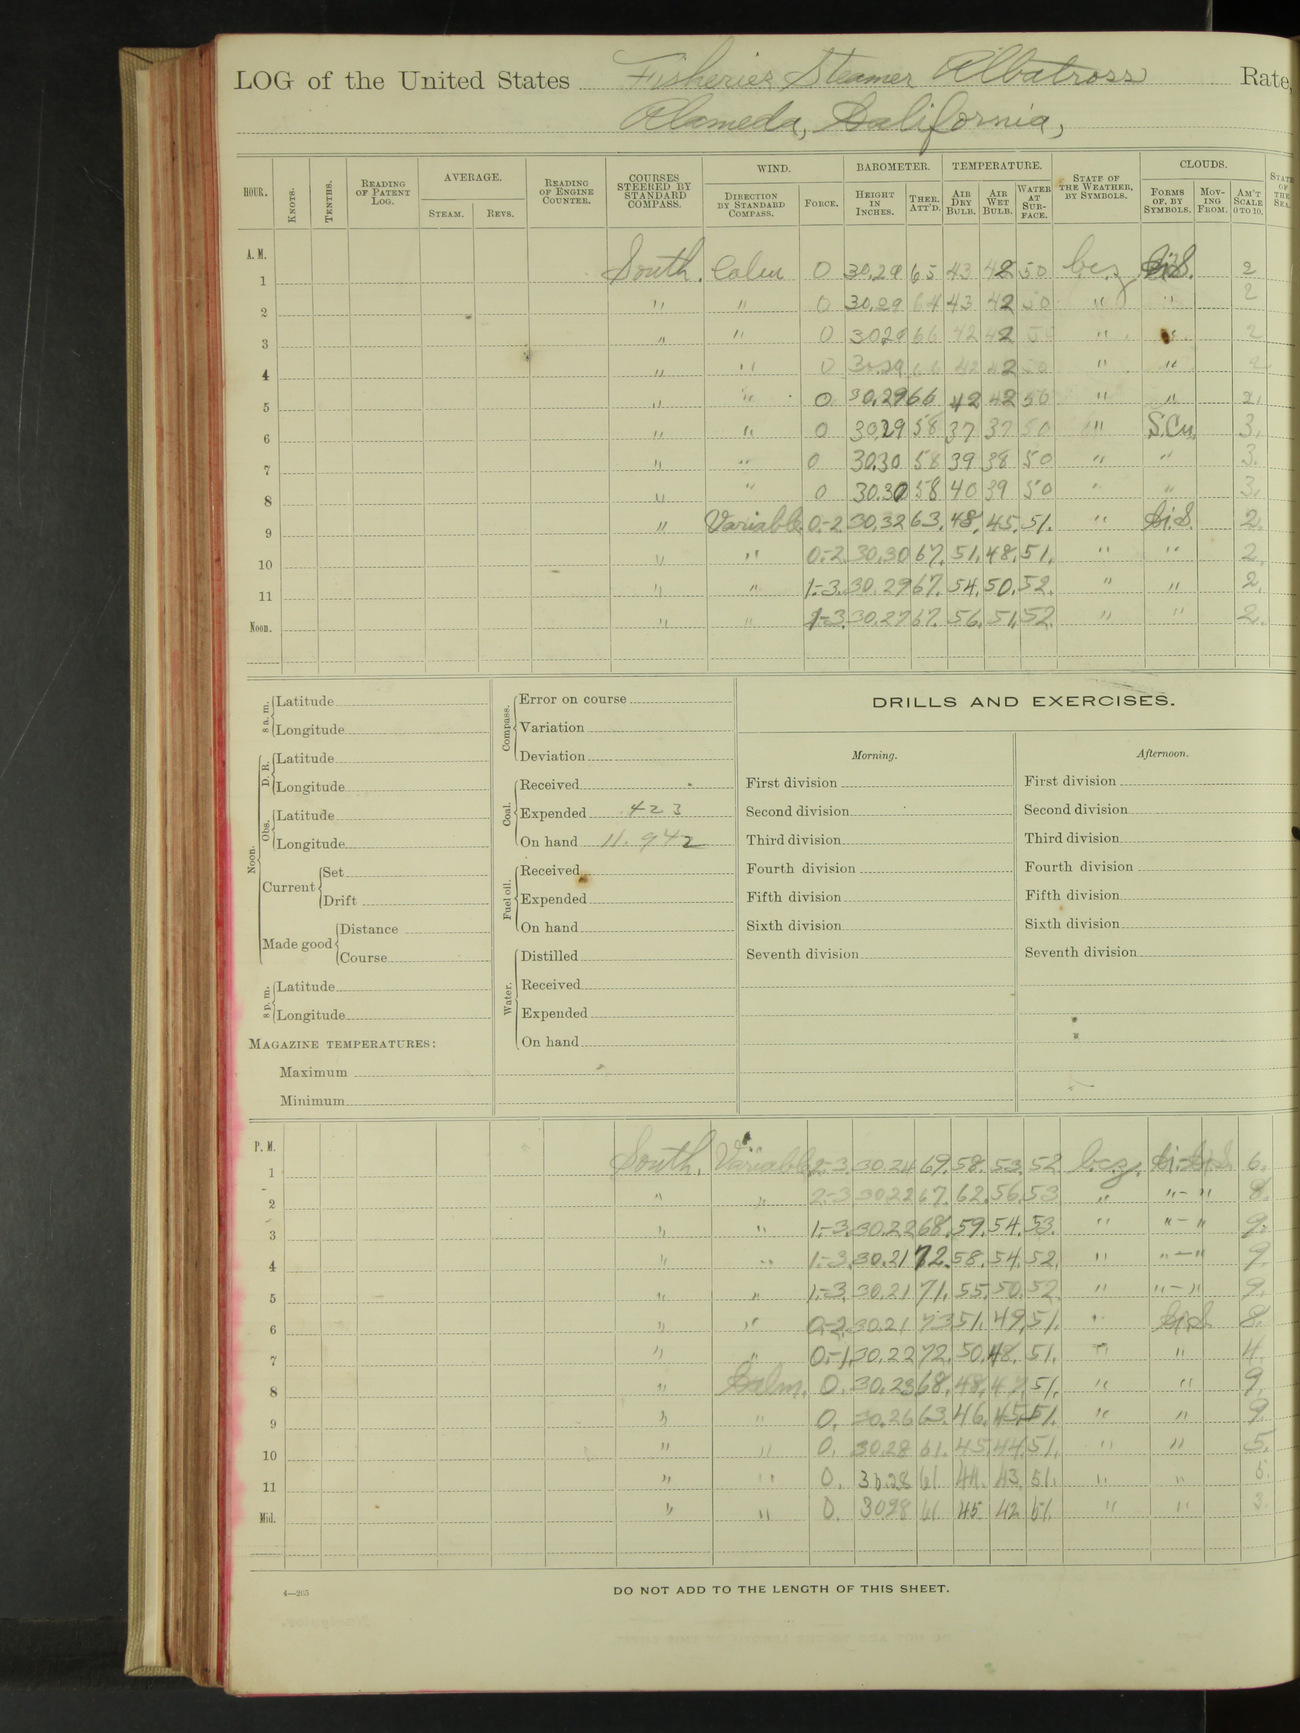 LOG of the United States Fisheries Steamer Albatross Rate,
Alameda, California,
HOUR. KNOTS. TENTHS. READING OF PATENT LOG. AVERAGE. STEAM. REVS. READING OF ENGINE COUNTER. COURSES STEERED BY STANDARD COMPASS. WIND. DIRECTION BY STANDARD COMPASS. FORCE. BAROMETER. HEIGHT IN INCHES. THER. ATT'D. TEMPERATURE. AIR DRY BULB. AIR WET BULB. WATER AT SURFACE. STATE OF THE WEATHER, BY SYMBOLS. CLOUDS. FORMS OF, BY SYMBOLS. MOVING FROM. AM'T SCALE 0 TO 10. STATE OF THE SEA.
A. M.
1 South. Calm 0 30.29 65 43 42 50 bcz Ci.S. 2
2 " " 0 30.29 64 43 42 50 " " 2
3 " " 0 30.29 66 42 42 50 " " 2
4 " " 0 30.29 66 42 42 50 " " 2
5 " " 0 30.29 66 42 42 50 " " 2.
6 " " 0 30.29 58 37 37 50 " S.Cu. 3.
7 " " 0 30.30 58 39 38 50 " " 3.
8 " " 0 30.30 58 40 39 50 " " 3.
9 " Variable 0-2 30.32 63. 48. 45. 51. " Ci.S. 2.
10 " " 0-2 30.30 67. 51. 48. 51. " " 2.
11 " " 1-3. 30.29 67. 54. 50. 52. " " 2.
Noon. " " 1-3. 30.27 67. 56. 51. 52. " " 2.
8 a. m. Latitude
Longitude
Noon.
D. R. Latitude
Longitude
Obs. Latitude
Longitude
Current Set
Drift
Made good Distance
Course
8 p. m. Latitude
Longitude
MAGAZINE TEMPERATURES:
Maximum
Minimum
Compass. Error on course
Variation
Deviation
Coal. Received
Expended 423
On hand 11.942
Fuel oil. Received
Expended
On hand
Water. Distilled
Received
Expended
On hand
DRILLS AND EXERCISES.
Morning. Afternoon.
First division First division
Second division Second division
Third division Third division
Fourth division Fourth division
Fifth division Fifth division
Sixth division Sixth division
Seventh division Seventh division
P. M.
1 South. Variable 2-3. 30.24 69. 58. 53. 52. b.c.z. Ci.-Ci.S. 6.
2 " " 2-3 30.22 67. 62. 56. 53. " "-" 8.
3 " " 1-3. 30.22 68. 59. 54. 53. " "-" 9.
4 " " 1-3. 30.21 72. 58. 54. 52. " "-" 9.
5 " " 1-3. 30.21 71. 55. 50. 52. " "-" 9.
6 " " 0-2. 30.21 73 51. 49. 51. " Ci.S 8.
7 " " 0-1. 30.22 72. 50. 48. 51. " " 4.
8 " Calm. 0. 30.23 68. 48. 47. 51. " " 9.
9 " " 0. 30.26 63. 46. 45. 51. " " 9.
10 " " 0. 30.28 61. 45. 44. 51. " " 5.
11 " " 0. 30.28 61. 44. 43. 51. " " 5.
Mid. " " 0. 30.28 61. 45. 42 51. " " 3.
4—205
DO NOT ADD TO THE LENGTH OF THIS SHEET.